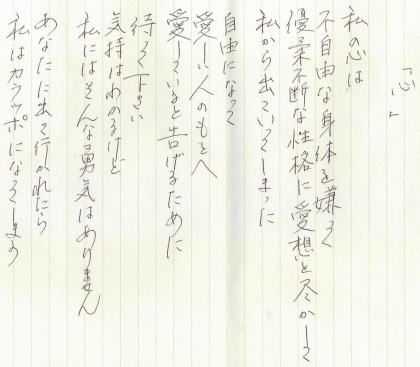 「心」
私の心は
不自由な身体を嫌って
優柔不断な性格に愛想を尽かして
私から出ていってしまった
自由になって
愛しい人のもとへ
愛していると告げるために
待って下さい
気持はわかるけど
私にはそんな勇気はありません
あなたに出て行かれたら
私はカラッポになってしまう